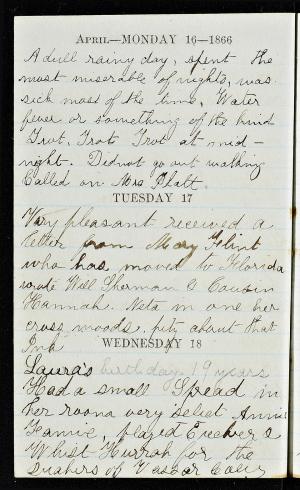 April—MONDAY 16—1866
A dull rainy day, spent the
most miserable of nights, was
sick most of the time, Water
fever or something of the kind
Trot, Trot Trot at mid-
night. Did not go out walking
Called on Mrs Platt.
TUESDAY 17
Very pleasant received a
letter from Mary Flint
who has moved to Florida
wrote Will Sherman & Cousin
Hannah. Neta in one her
cross moods, pity about that
Ink
WEDNESDAY 18
Laura's birthday 19 years
Had a small Spread in
her room very select Annie
Fannie, played Euchre &
Whist Hurrah for the
Quakers of Vassar